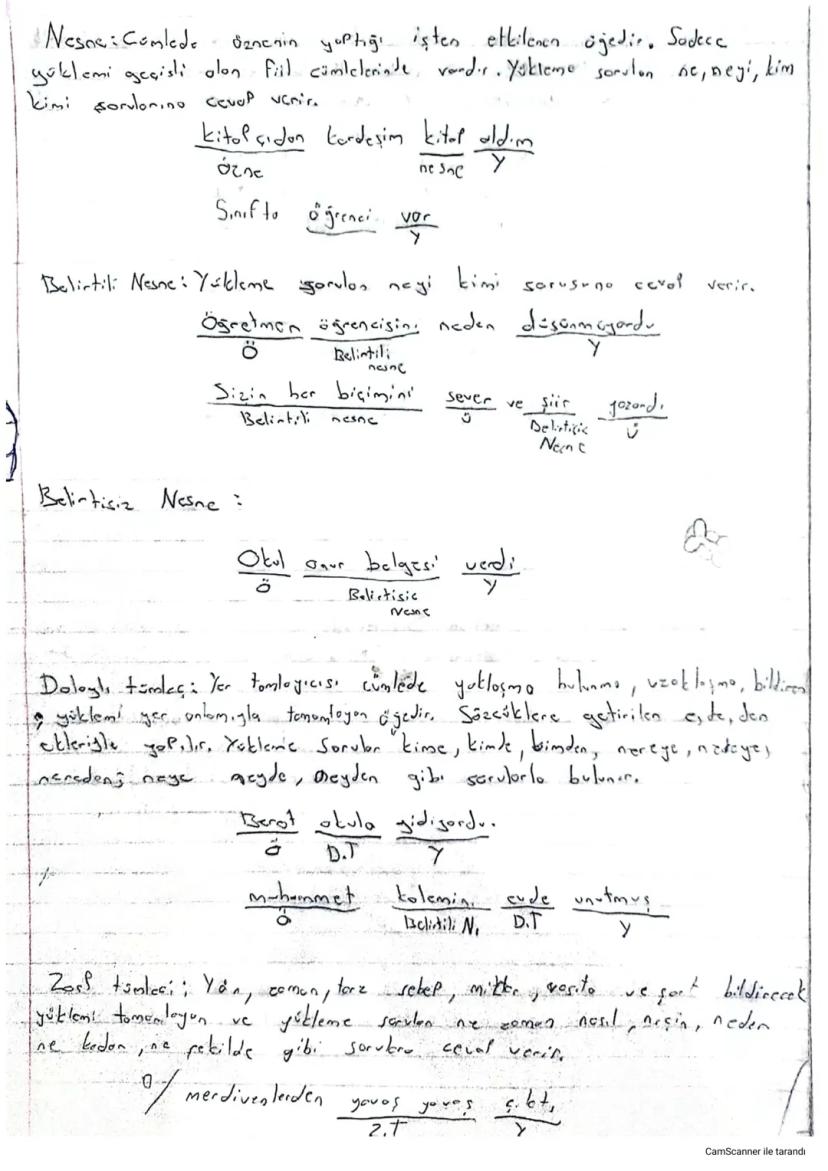 Nesne: Cümlede öznenin yaptığı işten etkilenen öğedir. Sadece
yüklemi geçişli olan fiil cümlelerinde vardır. Yükleme sorulan ne, neyi, kim
kimi sorularına cevap verir.
kitapçıdan kardeşim kitap aldım
özne nesne Y
Sınıfta öğrenci var
Y
Belirtili Nesne: Yükleme sorulan neyi kimi sorusuna cevap verir.
Öğretmen öğrencisini neden düşünmüyordu
Ö Belirtili Y
nesne
Sizin her biçimini sever ve şiir yazardı
Belirtili nesne ü Belirtisiz ü
Nesne
Belirtisiz Nesne :
Okul onur belgesi verdi
Ö Belirtisiz Y
Nesne
Dolaylı tümleç: Yer tamlayıcısı cümlede yaklaşma bulunma, uzaklaşma, bildiren
yüklemi yer anlamıyla tamamlayan öğedir. Sözcüklere getirilen e, de, den
ekleriyle yapılır. Yükleme sorulan kime, kimde, kimden, nereye,
nereden, neye neyde, neyden gibi sorularla bulunur.
Berat okula gidiyordu.
Ö D.T Y
muhammet kalemini evde unutmuş
Ö Belirtili N. D.T Y
Zarf tümleci: Yön, zaman, tarz sebep, miktar, vasıta ve şart bildirecek
yüklemi tamamlayan ve yükleme sorulan ne zaman nasıl, niçin, neden
ne kadar, ne şekilde gibi sorulara cevap verir.
O/ merdivenlerden yavaş yavaş çıktı
Z.T Y
CamScanner ile tarandı